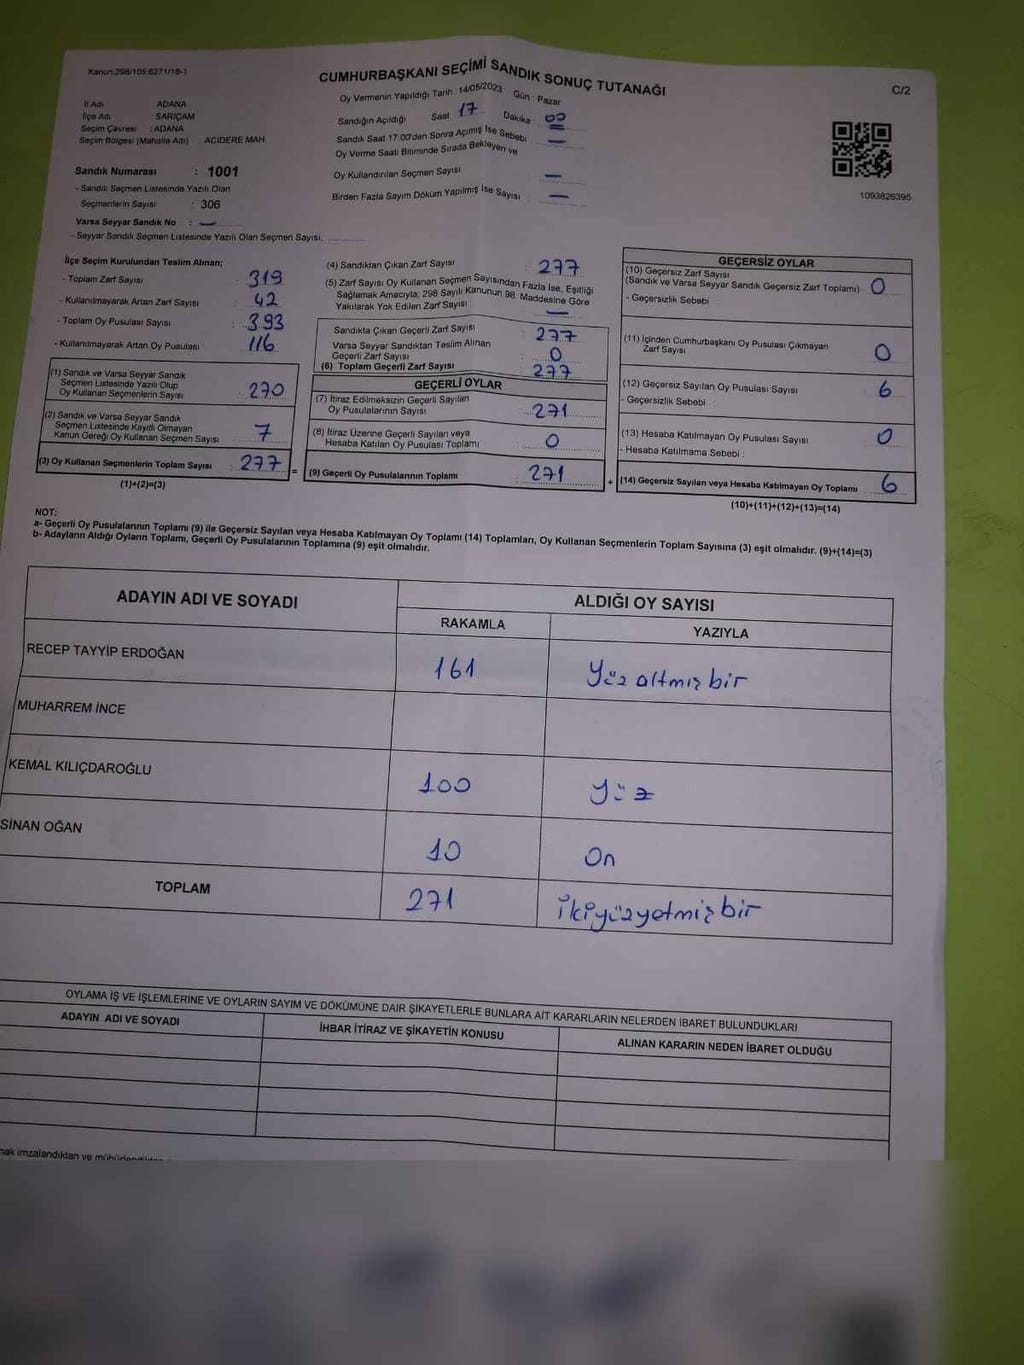 Kanun:298/105:6271/18-1
CUMHURBAŞKANI SEÇİMİ SANDIK SONUÇ TUTANAĞI
C/2
Oy Vermenin Yapıldığı Tarih : 14/05/2023 Gün : Pazar
İl Adı ADANA
İlçe Adı SARIÇAM
Seçim Çevresi : ADANA
Seçim Bölgesi (Mahalle Adı) : ACIDERE MAH
Sandığın Açıldığı Saat 17 Dakika 00
Sandık Saat 17:00'den Sonra Açımış İse Sebebi —
Oy Verme Saati Bitiminde Sırada Bekleyen ve
Oy Kullandırılan Seçmen Sayısı —
Birden Fazla Sayım Döküm Yapılmış İse Sayısı —
1093826395
Sandık Numarası : 1001
- Sandık Seçmen Listesinde Yazılı Olan
Seçmenlerin Sayısı : 306
Varsa Seyyar Sandık No : —
- Seyyar Sandık Seçmen Listesinde Yazılı Olan Seçmen Sayısı.
İlçe Seçim Kurulundan Teslim Alınan;
- Toplam Zarf Sayısı : 319
- Kullanılmayarak Artan Zarf Sayısı : 42
- Toplam Oy Pusulası Sayısı : 393
- Kullanılmayarak Artan Oy Pusulası : 116
(1) Sandık ve Varsa Seyyar Sandık
Seçmen Listesinde Yazılı Olup
Oy Kullanan Seçmenlerin Sayısı : 270
(2) Sandık ve Varsa Seyyar Sandık
Seçmen Listesinde Kayıtlı Olmayan
Kanun Gereği Oy Kullanan Seçmen Sayısı : 7
(3) Oy Kullanan Seçmenlerin Toplam Sayısı : 277
(1)+(2)=(3)
=
(4) Sandıktan Çıkan Zarf Sayısı : 277
(5) Zarf Sayısı Oy Kullanan Seçmen Sayısından Fazla İse, Eşitliği
Sağlamak Amacıyla; 298 Sayılı Kanunun 98. Maddesine Göre
Yakılarak Yok Edilen Zarf Sayısı —
Sandıkta Çıkan Geçerli Zarf Sayısı : 277
Varsa Seyyar Sandıktan Teslim Alınan
Geçerli Zarf Sayısı : 0
(6) Toplam Geçerli Zarf Sayısı : 277
GEÇERLİ OYLAR
(7) İtiraz Edilmeksizin Geçerli Sayılan
Oy Pusulalarının Sayısı : 271
(8) İtiraz Üzerine Geçerli Sayılan veya
Hesaba Katılan Oy Pusulası Toplamı : 0
(9) Geçerli Oy Pusulalarının Toplamı : 271
+
GEÇERSİZ OYLAR
(10) Geçersiz Zarf Sayısı
(Sandık ve Varsa Seyyar Sandık Geçersiz Zarf Toplamı) : 0
- Geçersizlik Sebebi :
(11) İçinden Cumhurbaşkanı Oy Pusulası Çıkmayan
Zarf Sayısı : 0
(12) Geçersiz Sayılan Oy Pusulası Sayısı : 6
- Geçersizlik Sebebi :
(13) Hesaba Katılmayan Oy Pusulası Sayısı : 0
- Hesaba Katılmama Sebebi :
(14) Geçersiz Sayılan veya Hesaba Katılmayan Oy Toplamı : 6
(10)+(11)+(12)+(13)=(14)
NOT:
a- Geçerli Oy Pusulalarının Toplamı (9) ile Geçersiz Sayılan veya Hesaba Katılmayan Oy Toplamı (14) Toplamları, Oy Kullanan Seçmenlerin Toplam Sayısına (3) eşit olmalıdır. (9)+(14)=(3)
b- Adayların Aldığı Oyların Toplamı, Geçerli Oy Pusulalarının Toplamına (9) eşit olmalıdır.
ADAYIN ADI VE SOYADI ALDIĞI OY SAYISI
RAKAMLA YAZIYLA
RECEP TAYYİP ERDOĞAN 161 Yüz altmış bir
MUHARREM İNCE
KEMAL KILIÇDAROĞLU 100 Yüz
SİNAN OĞAN 10 On
TOPLAM 271 ikiyüzyetmiş bir
OYLAMA İŞ VE İŞLEMLERİNE VE OYLARIN SAYIM VE DÖKÜMÜNE DAİR ŞİKAYETLERLE BUNLARA AİT KARARLARIN NELERDEN İBARET BULUNDUKLARI
ADAYIN ADI VE SOYADI İHBAR İTİRAZ VE ŞİKAYETİN KONUSU ALINAN KARARIN NEDEN İBARET OLDUĞU
imzalandıktan ve